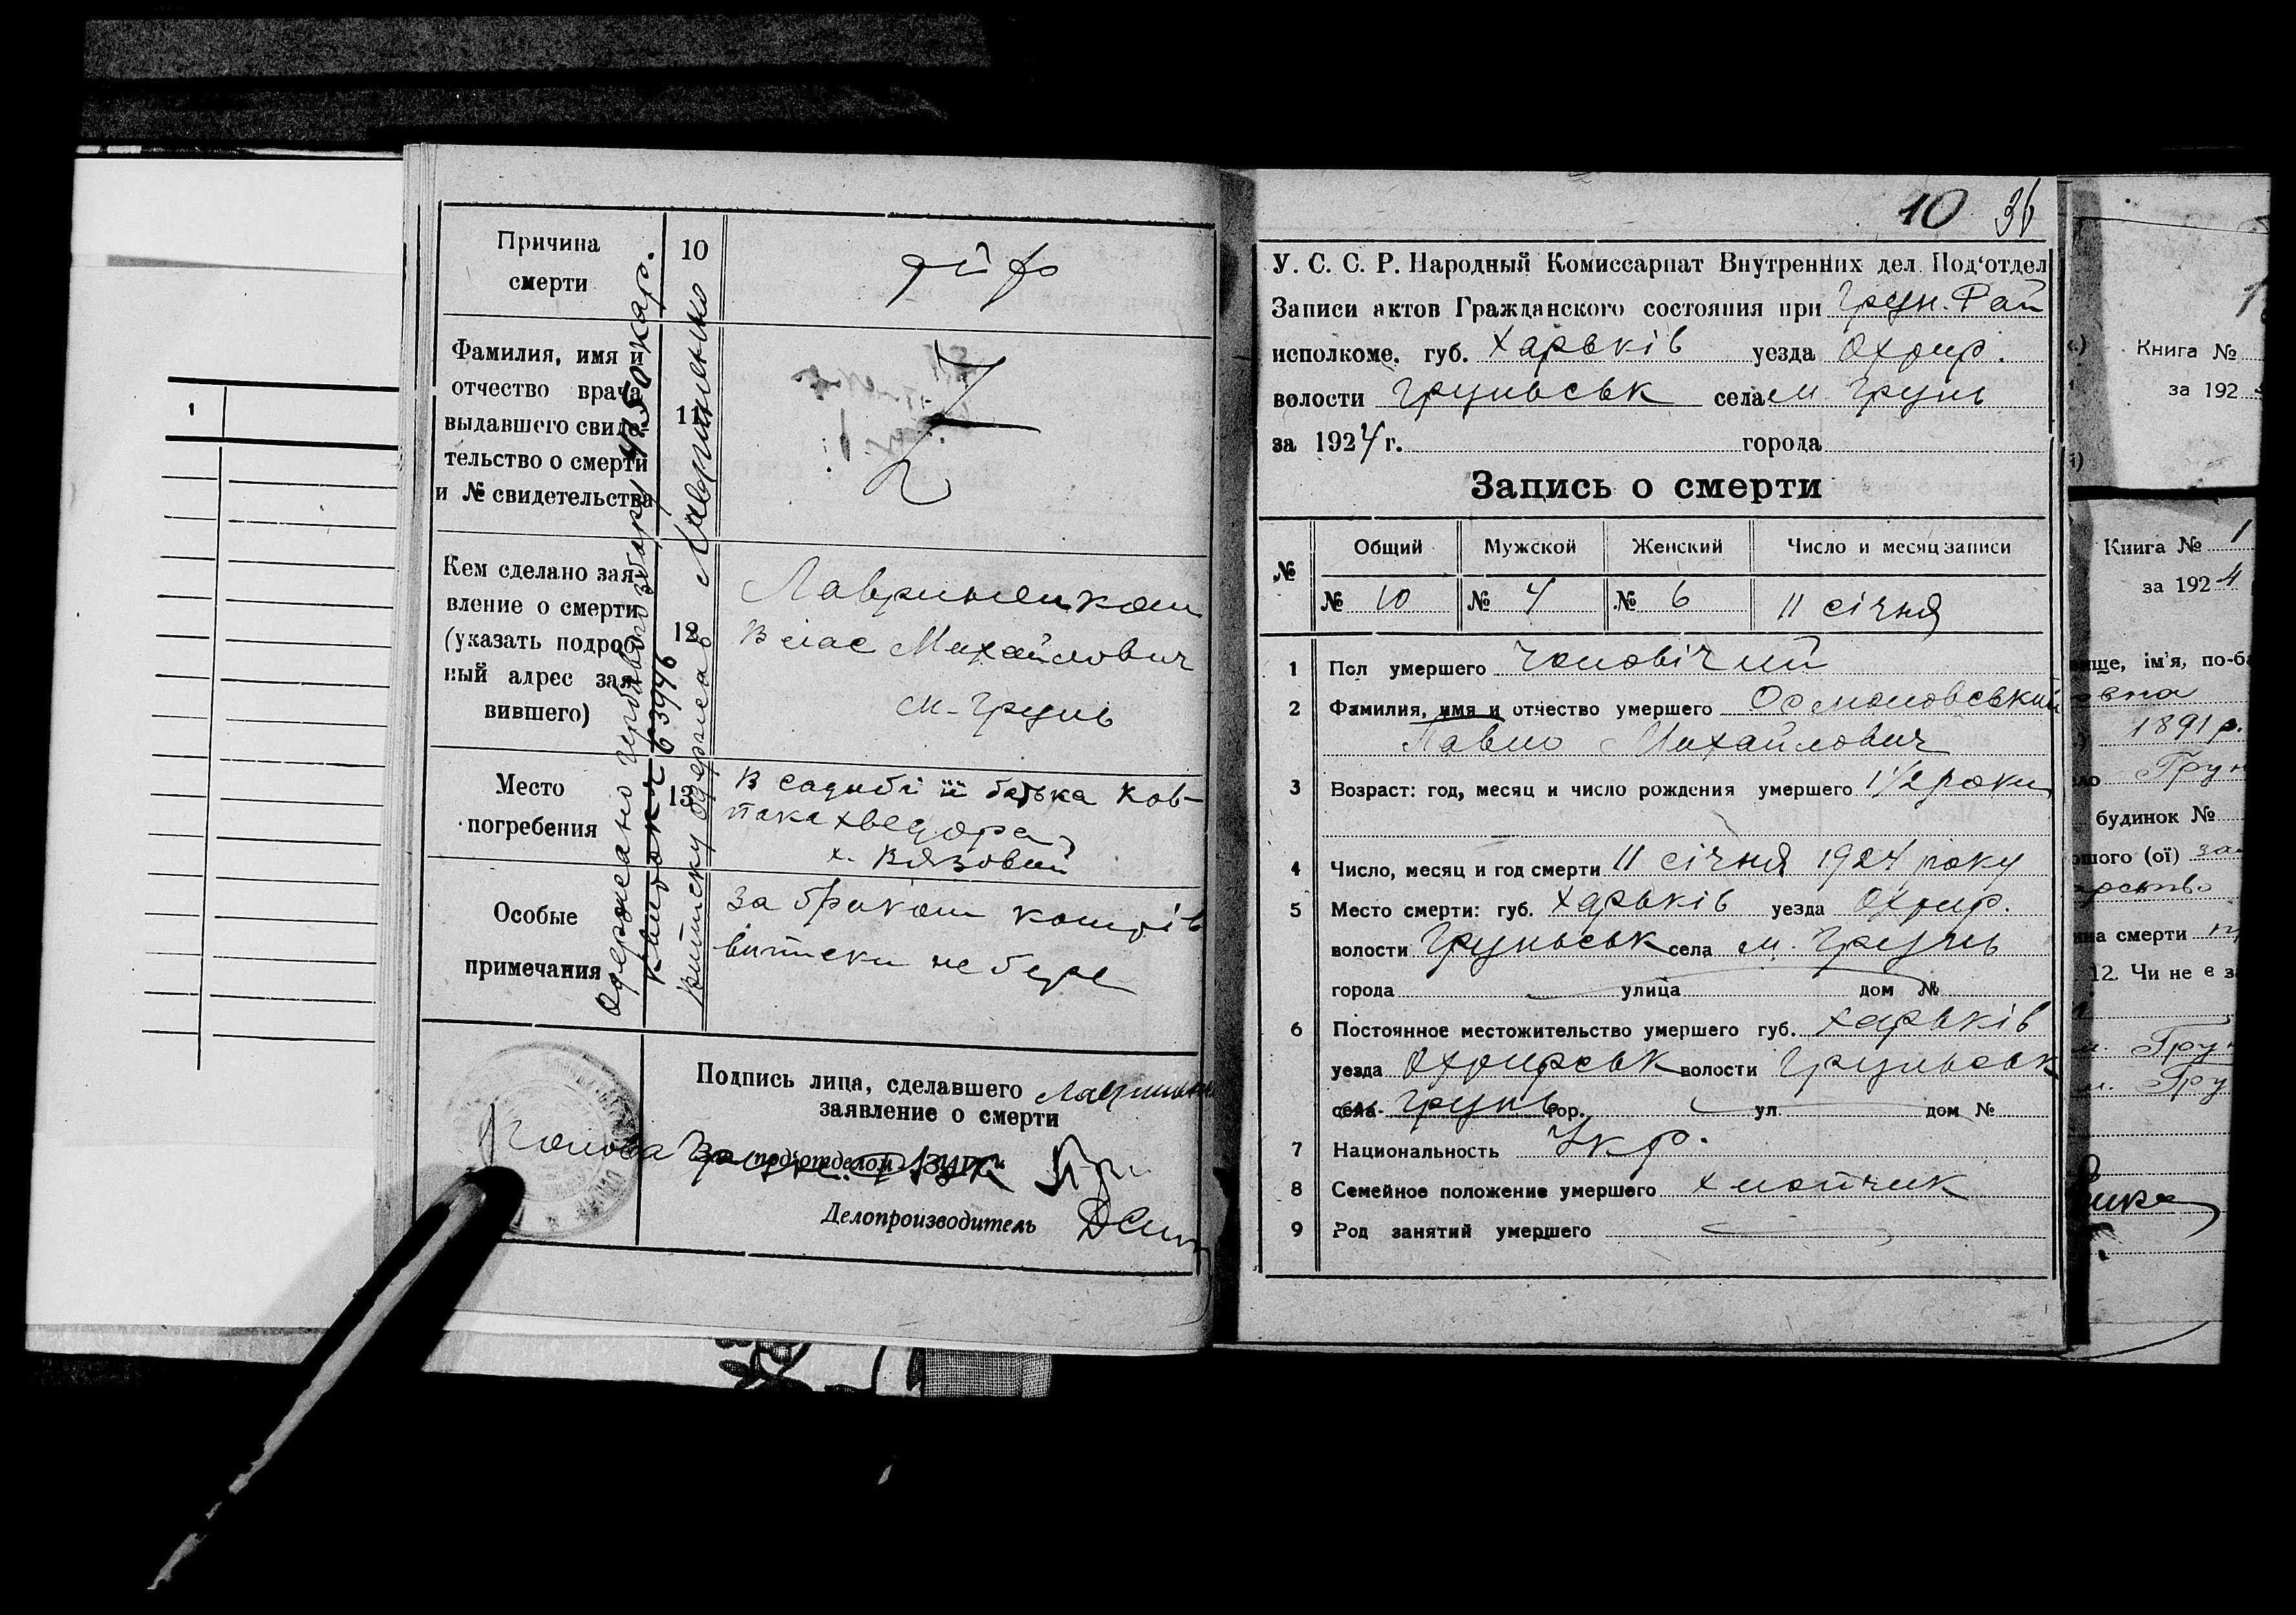 1
Причина
смерти
10
тиф
Фамилия, имя и
отчество врача
выдавшего свиде-
тельство о смерти
и № свидетельства
11
Кем сделано зая-
вление о смерти
(указать подроб-
ный адрес зая-
вившего)
12
Лавриненком
Влас Михайлович
м. Грунь
Место
погребения
13
В садибі її батька Ков-
пака Хведора
х. Вязовий
Особые
примечания
За браком коштів
виписки не бере
Одержано гербового збару 4750 кар.
Квиток ч 63946
Виписку одержав Лавриненко
Подпись лица, сделавшего
заявление о смерти
Голова
Зав. под'отделом ЗАГС
Делопроизводитель
10 36
У. С. С. Р. Народный Комиссариат Внутренних дел. Под'отдел
Записи актов Гражданского состояния при Грун. Рай
исполкоме, губ. Харьків уезда Охтир.
волости Груньськ села м. Грунь
за 1924 г. города
Запись о смерти
№ Общий Мужской Женский Число и месяц записи
№ 10 № 4 № 6 11 січня
1 Пол умершего Чоловічий
2 Фамилия, имя и отчество умершего Осмоловський
Павло Михайлович
3 Возраст: год, месяц и число рождения умершего 1 1/2 роки
4 Число, месяц и год смерти 11 січня 1924 року
5 Место смерти: губ. Харьків уезда Охтир.
волости Груньськ села м. Грунь
города улица дом №
6 Постоянное местожительство умершего губ. Харьків
уезда Охтирськ волости Груньськ
села Грунь гор. ул. дом №
7 Национальность Укр.
8 Семейное положение умершего хлопчик
9 Род занятий умершего
Книга №
за 192
Книга № 1
за 1924
ім'я, по-ба
1891 р.
Грун
будинок №
шого (ої)
смерти
12. Чи не є з
Грун
Гру